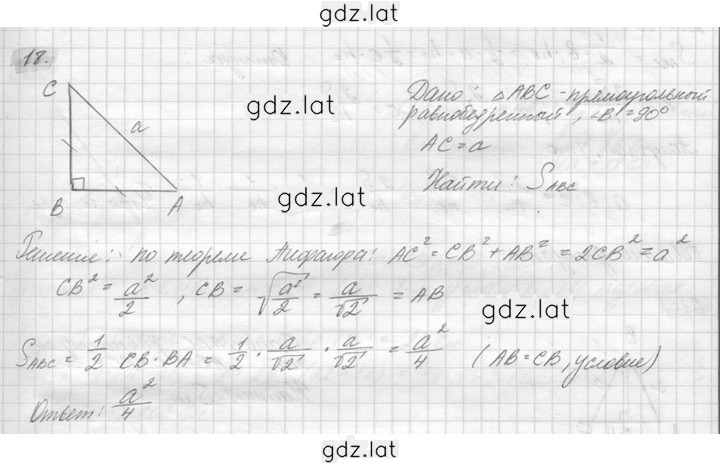 gdz.lat
18.
C
a
B A
Дано: △ABC - прямоугольный
равнобедренный, ∠B = 90°
AC = a
Найти: S_ABC
gdz.lat
gdz.lat
Решение: по теореме Пифагора: AC² = CB² + AB² = 2CB² = a²
CB² = a²/2, CB = √(a²/2) = a/√2 = AB
gdz.lat
S_ABC = 1/2 CB · BA = 1/2 · a/√2 · a/√2 = a²/4 (AB = CB, условие)
Ответ: a²/4
gdz.lat